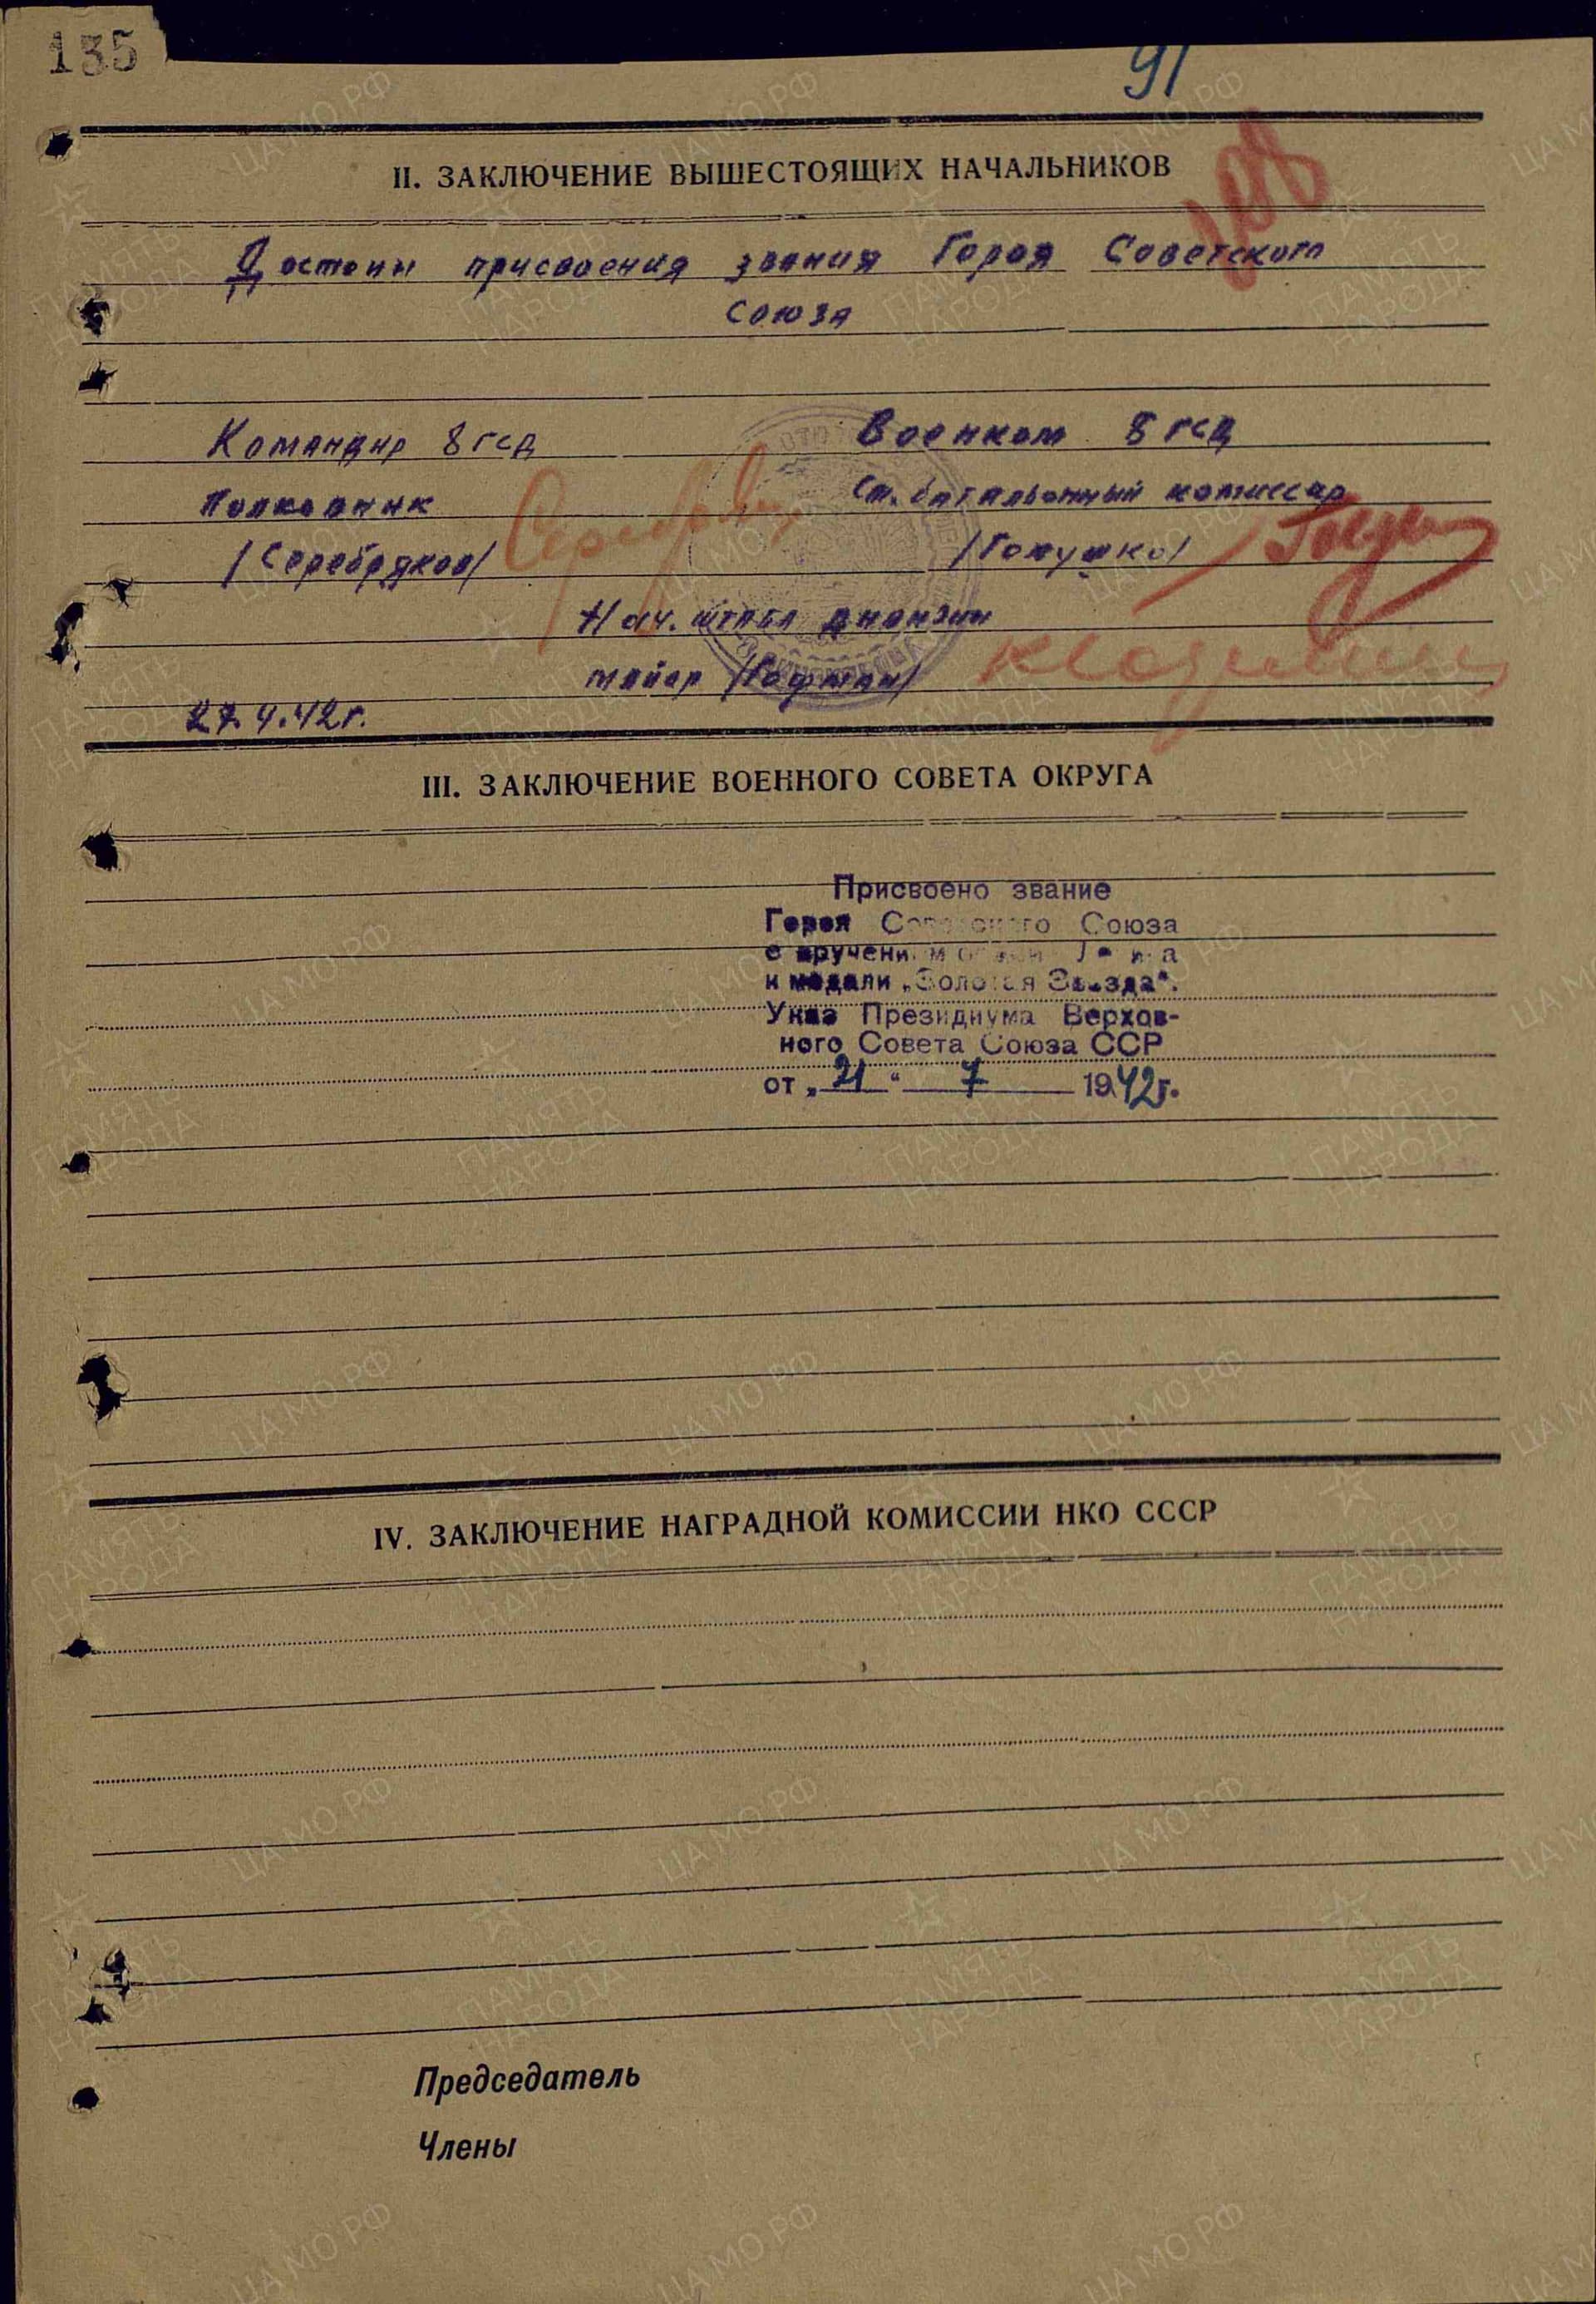 135
91
108
II. ЗАКЛЮЧЕНИЕ ВЫШЕСТОЯЩИХ НАЧАЛЬНИКОВ
Достоин присвоения звания Героя Советского
Союза
Командир 8 гсд Военком 8 гсд
Полковник Ст. батальонный комиссар
/Серебряков/ /Голушко/
Нач. штаба дивизии
майор /Гофман/
27.4.42г.
III. ЗАКЛЮЧЕНИЕ ВОЕННОГО СОВЕТА ОКРУГА
Присвоено звание
Героя Советского Союза
с вручением Ленина
и медали „Золотая Звезда".
Указ Президиума Верхов-
ного Совета Союза ССР
от „21" 7 1942г.
IV. ЗАКЛЮЧЕНИЕ НАГРАДНОЙ КОМИССИИ НКО СССР
Председатель
Члены
ЦА МО РФ
ПАМЯТЬ
НАРОДА